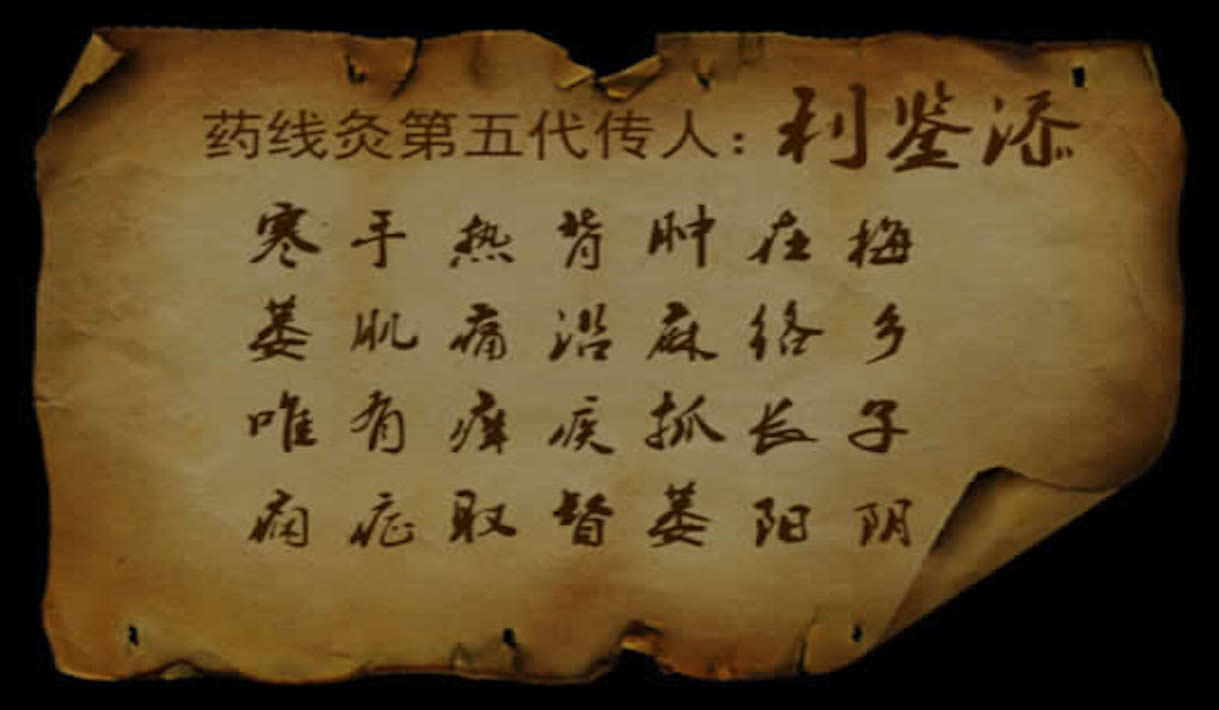 药线灸第五代传人：利鉴添
寒手热背肿在梅
萎肌痛沿麻络乡
唯有痺疾抓长子
痛症取督萎阳阴